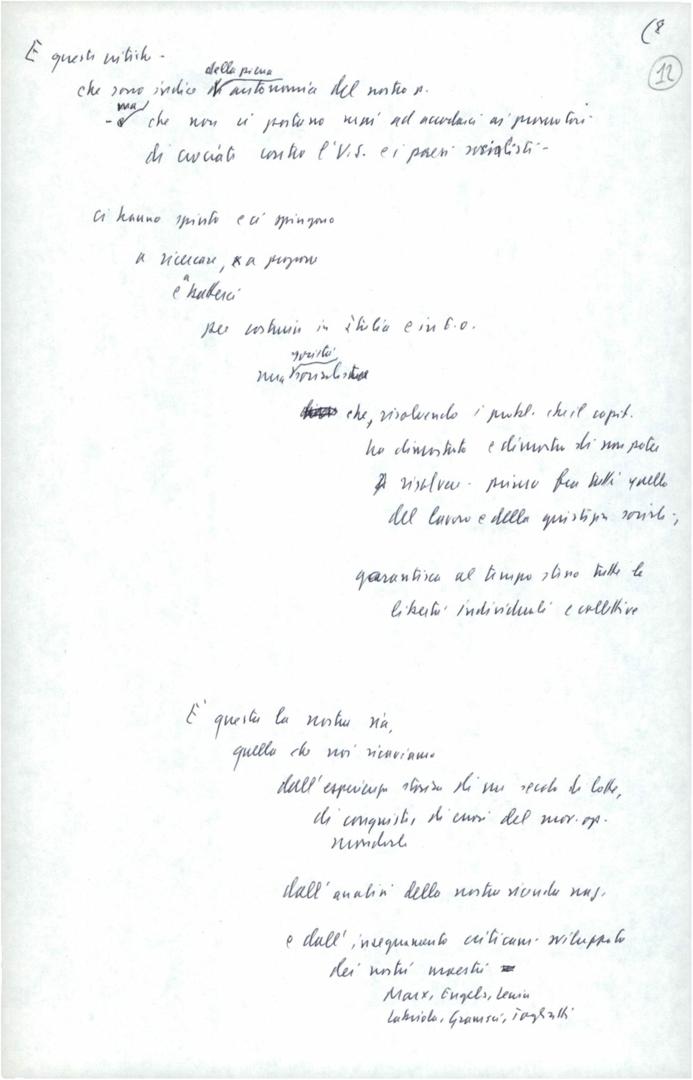 (8
12
E queste critiche -
della piena
che sono indice autonomia del nostro p.
ma
- che non ci portano mai ad accodarci ai promotori
di crociate contro l'U.S. e i paesi socialisti -
ci hanno spinto e ci spingono
a ricercare, a proporre
a
e batterci
per costruire in Italia e in E.O.
società
una socialista
che, risolvendo i probl. che il capit.
ha dimostrato e dimostra di non poter
risolvere - primo fra tutti quello
del lavoro e della giustizia sociale -,
garantisca al tempo stesso tutte le
libertà individuali e collettive
E' questa la nostra via,
quella che noi ricaviamo
dall'esperienza storica di un secolo di lotte,
di conquiste, di errori del mov. op.
mondiale
dall'analisi della nostra vicenda naz.
e dall'insegnamento criticam. sviluppato
dei nostri maestri
Marx, Engels, Lenin
Labriola, Gramsci, Togliatti